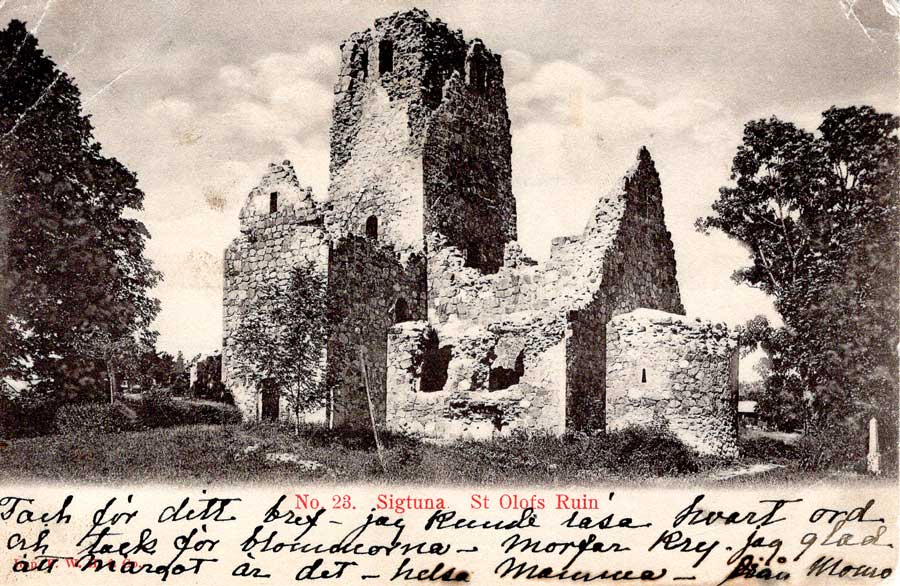 No. 23. Sigtuna. St Olofs Ruin
Tach för ditt bref - jag kunde läsa hwart ord
ach tack för blommorna - morfar kry - jag glad
att margot är det - helsa Mamma - från Momo